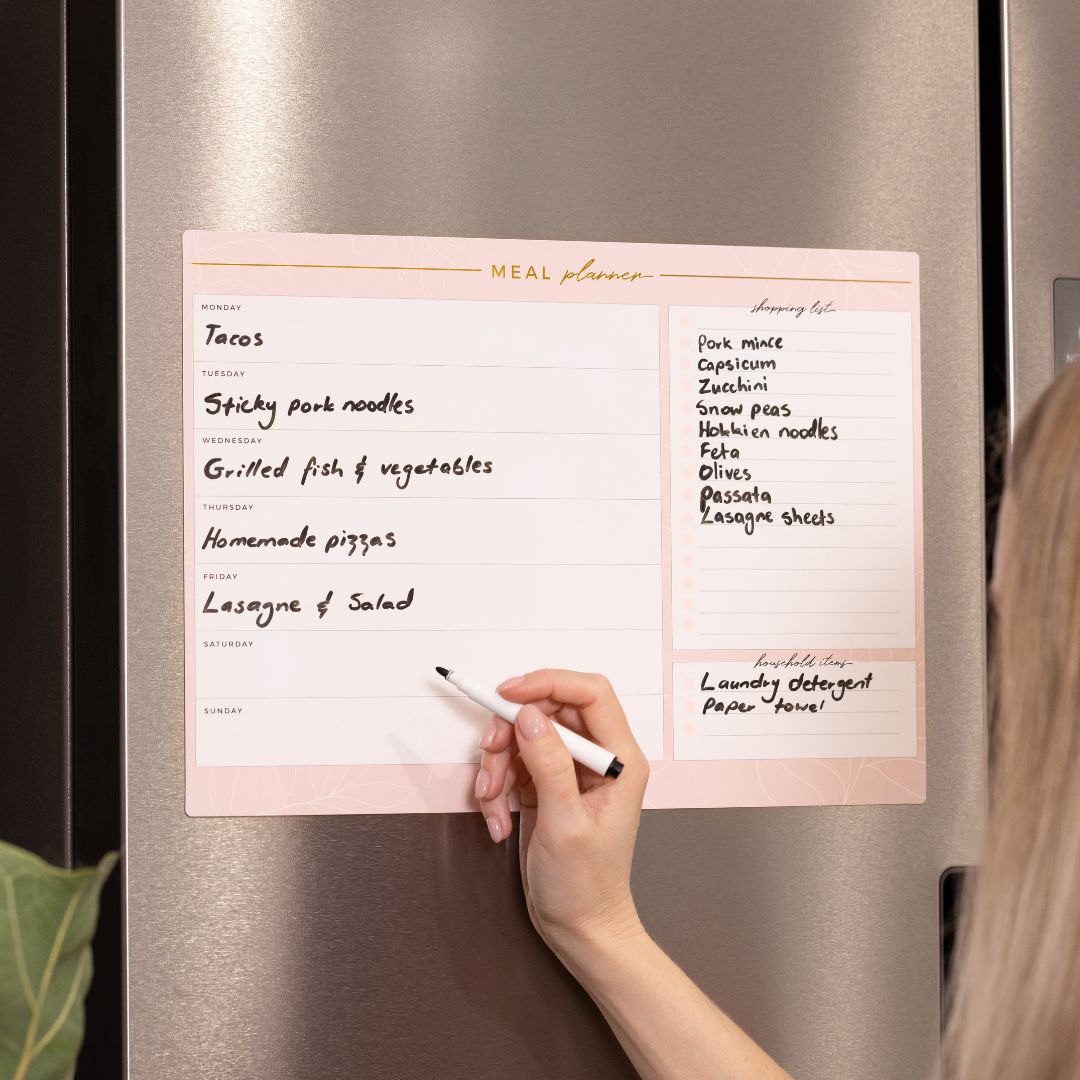 MEAL planner
MONDAY
Tacos
TUESDAY
Sticky pork noodles
WEDNESDAY
Grilled fish & vegetables
THURSDAY
Homemade pizzas
FRIDAY
Lasagne & Salad
SATURDAY
SUNDAY
shopping list
Pork mince
Capsicum
Zucchini
Snow peas
Hokkien noodles
Feta
Olives
Passata
Lasagne sheets
household items
Laundry detergent
Paper towel